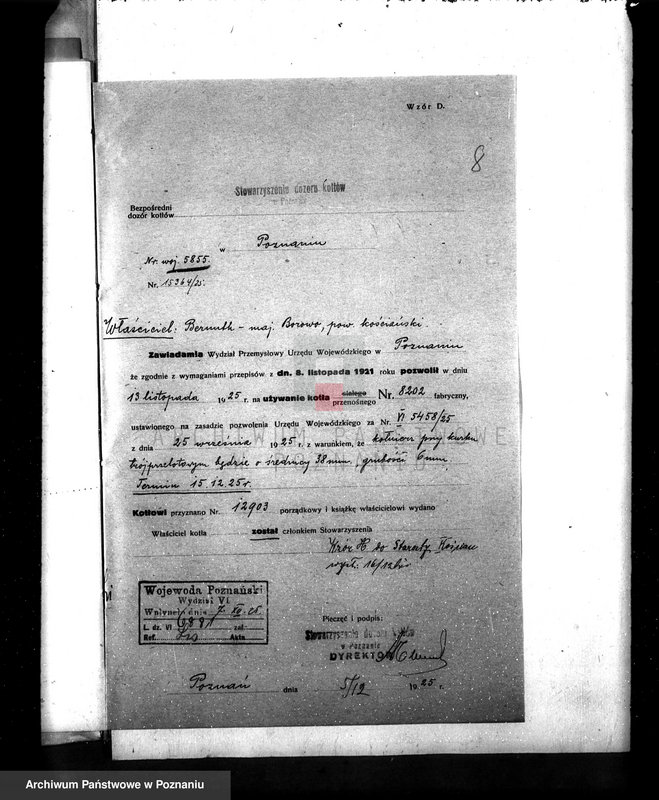 Wzór D.
8
Stowarzyszenie dozoru kotłów
w Poznaniu
Bezpośredni
dozór kotłów
w Poznaniu
Nr. woj. 5855.
Nr. 15364/25.
Właściciel: Bermuth - maj. Borowo, pow. kościański.
Zawiadamia Wydział Przemysłowy Urzędu Wojewódzkiego w Poznaniu
że zgodnie z wymaganiami przepisów z dn. 8. listopada 1921 roku pozwolił w dniu
13 listopada 1925 r. na używanie kotła stałego przenośnego Nr. 8202 fabryczny,
ustawionego na zasadzie pozwolenia Urzędu Wojewódzkiego za Nr. VI 5458/25
z dnia 25 września 1925 r. z warunkiem, że kołnierz przy kurku
trójprzelotowym będzie o średnicy 38 mm, grubości 6 mm.
Termin 15.12.25 r.
Kotłowi przyznano Nr. 12903 porządkowy i książkę właścicielowi wydano
Właściciel kotła został członkiem Stowarzyszenia
do
16/12
Wojewoda Poznański
Wydział VI
Wpłynęł dnia 7. XII. 25
L. dz. VI 6881 zał
Ref. Akta
Pieczęć i podpis:
Stowarzyszenie dozoru kotłów
w Poznaniu
DYREKTOR
Poznań dnia 5/12 1925 r.
ARCHIWUM PAŃSTWOWE
W POZNANIU
Archiwum Państwowe w Poznaniu